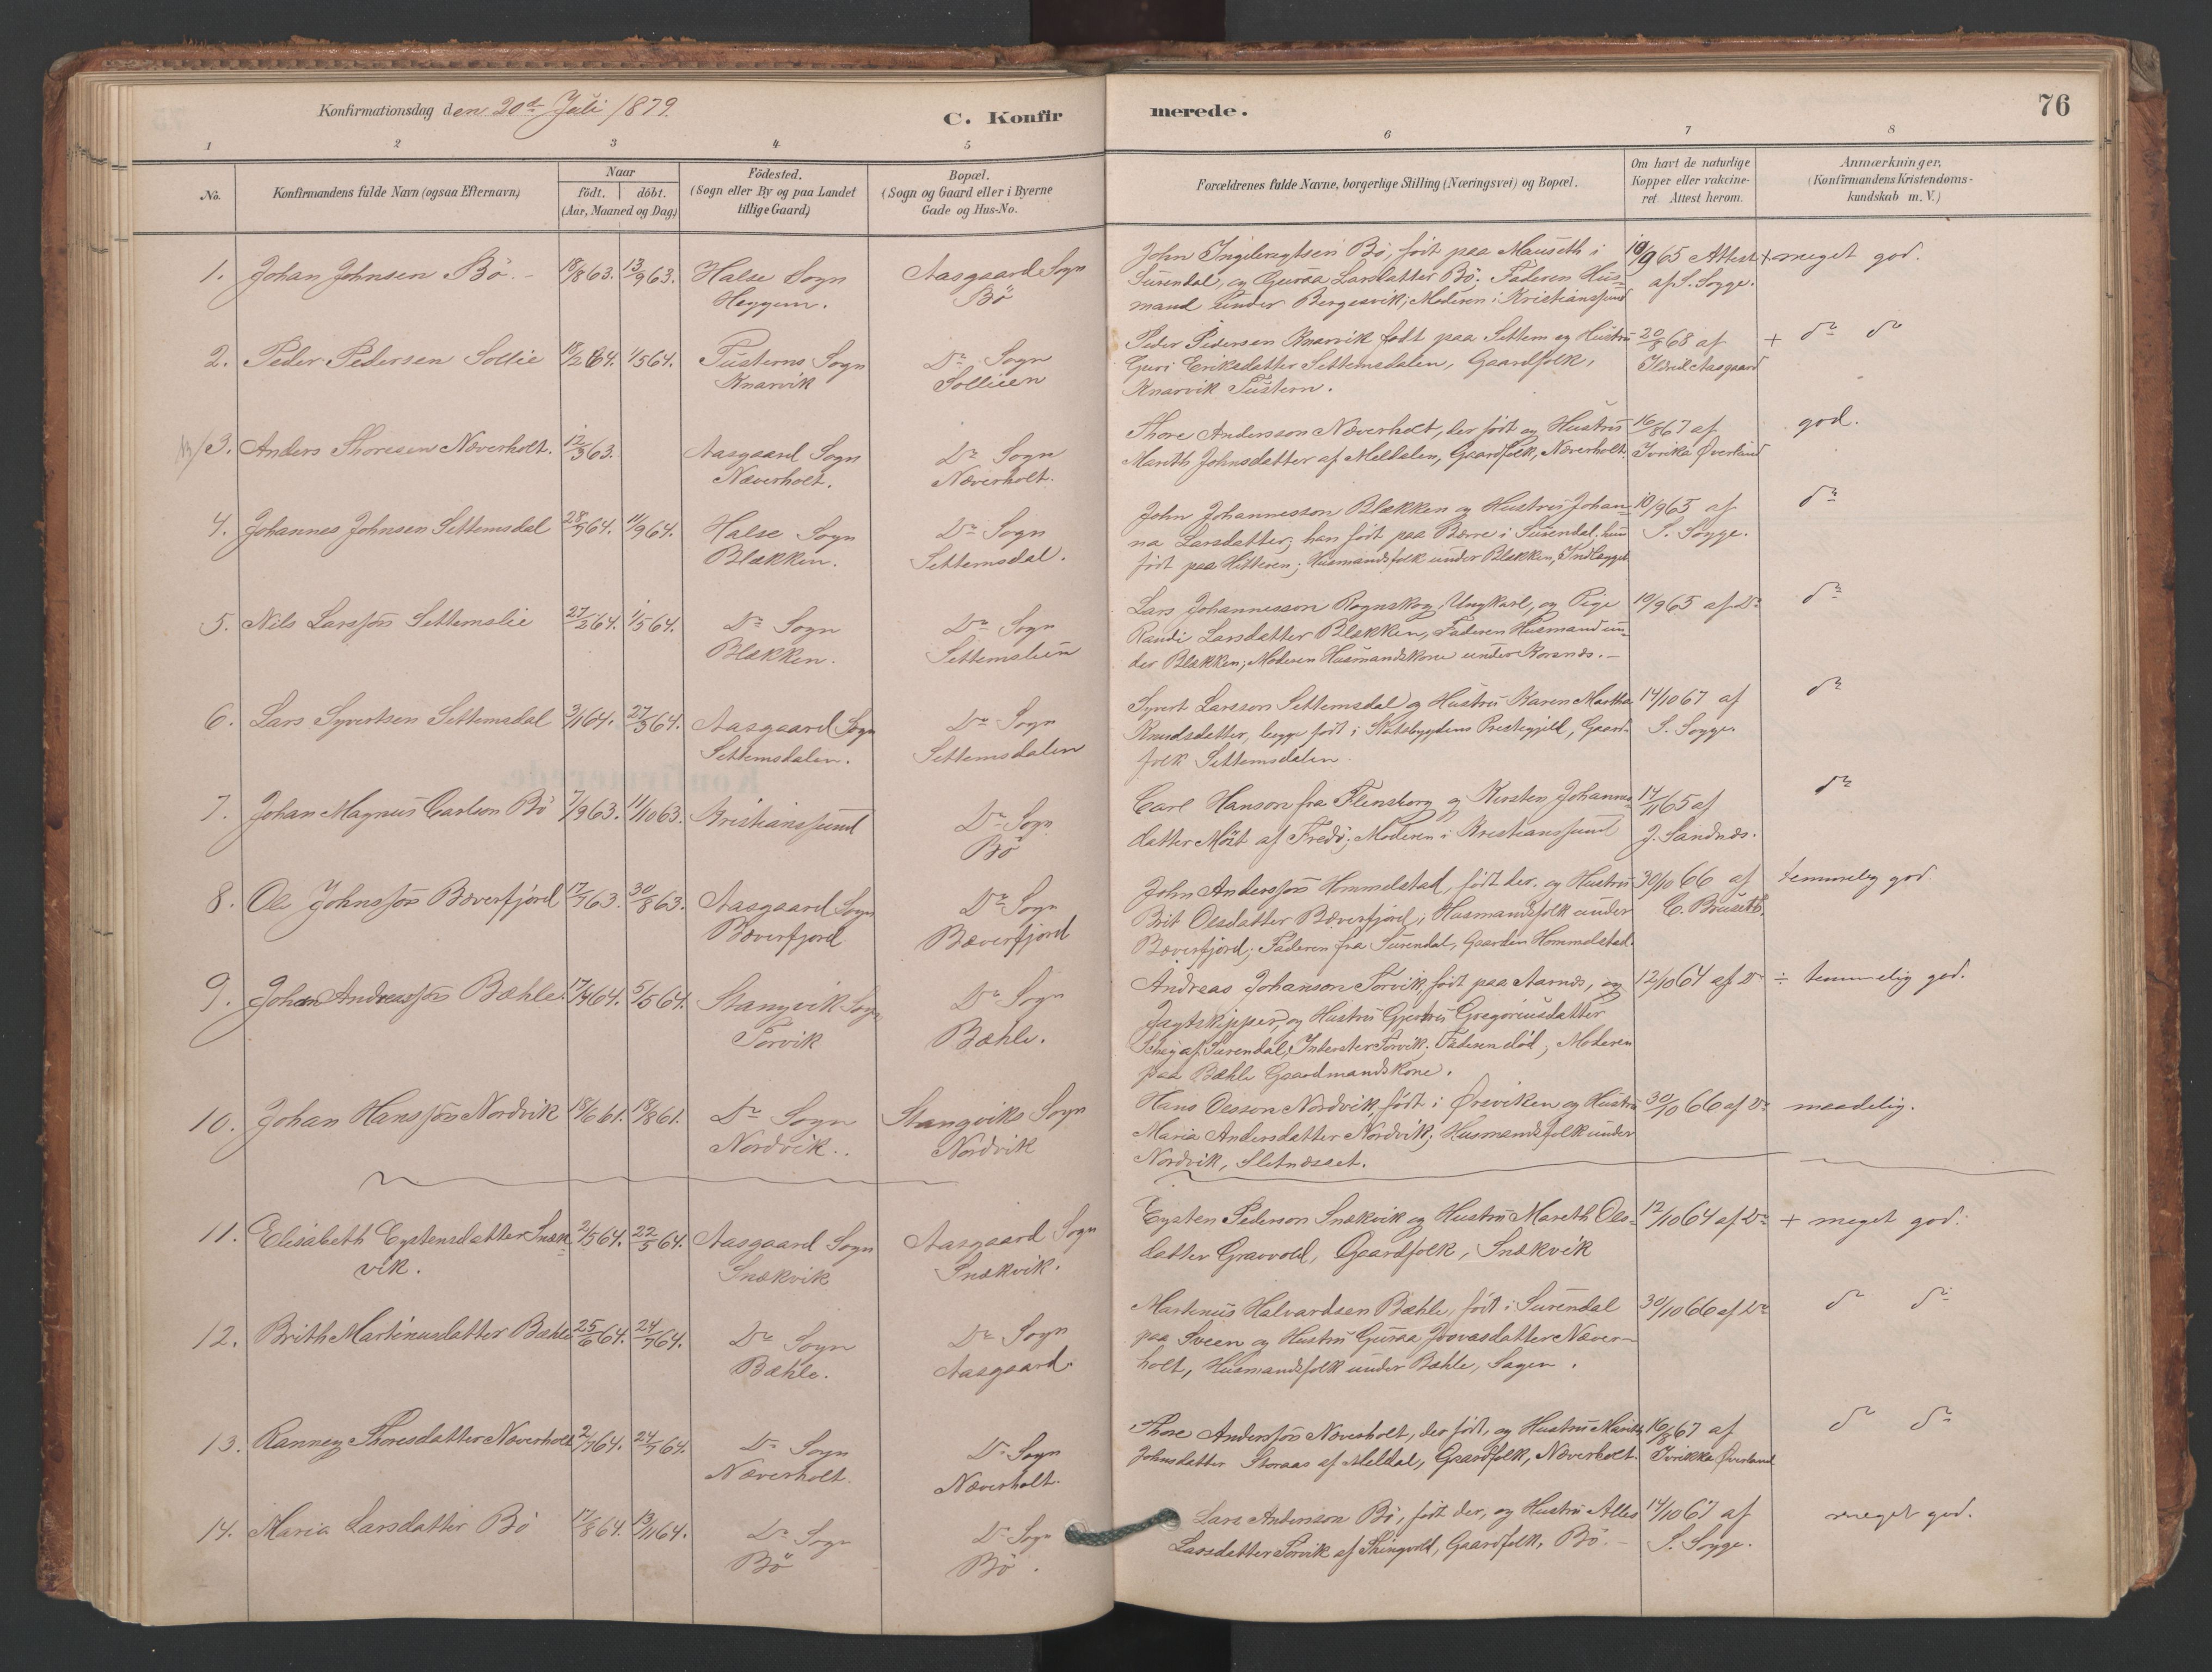 Konfirmationsdag den 20de Juli 1879.
C. Konfirmerede.
76
1 2 3 4 5 6 7 8
No. | Konfirmandens fulde Navn (ogsaa Efternavn) | Naar födt. döbt. (Aar, Maaned og Dag.) | Födested. (Sogn eller By og paa Landet tillige Gaard.) | Bopæl. (Sogn og Gaard eller i Byerne Gade og Hus-No. | Forældrenes fulde Navne, borgerlige Stilling (Næringsvei) og Bopæl. | Om havt de naturlige Kopper eller vakcineret. Attest herom. | Anmærkninger. (Konfirmandens Kristendomskundskab m. V.)
1. Johan Johnsen Bö. - | 18/8 63. | 13/9 63. | Halse Sogn
Heggem. | Aasgaard Sogn
Bö | John Ingebrigtsen Bö, födt paa Mauseth i
Surendal, og Guraa Larsdatter Bö. Faderen Hus-
mand under Bergesvik; Moderen i Kristianssund | 10/9 65 Attest
af S. Sogge. | + meget god.
2. Peder Pedersen Sollie | 18/2 64. | 1/5 64. | Tusterns Sogn
Knarvik | Do Sogn
Sollieen | Peder Pedersen Knarvik födt paa Settem og Hustru
Guri Eriksdatter Settemsdalen, Gaardfolk,
Knarvik Tustern. | 20/8 68 af
Ildrid Aasgaard | + do do
3. Anders Thoresen Næverholt. | 12/3 63. | Aasgaard Sogn
Næverholt. | Do Sogn
Næverholt. | Thore Andersson Næverholt, der födt og Hustru
Marith Johnsdatter af Meldalen, Gaardfolk, Næverholt. | 16/8 67 af
Ivrikka Øverland | god.
4. Johannes Johnsen Settemsdal | 28/7 64. | 11/9 64. | Halse Sogn
Blækken. | Do Sogn
Settemsdal. | John Johannesson Blækken og Hustru Johan-
na Larsdatter; han födt paa Bærre i Surendal, hun
födt paa Hitteren; Husmandsfolk under Blækken, Indlægget | 10/9 65 af
S. Sogge. | do
5. Nils Larssön Settemslie | 27/2 64. | 1/5 64. | Do Sogn
Blækken. | Do Sogn
Settemslien | Lars Johannesson Rognskog, Ungkarl, og Pige
Randi Larsdatter Blækken, Faderen Husmand un-
der Blækken; Moderen Husmandskone under Korsnæs. - | 10/9 65 af Do | do
6. Lars Syvertsen Settemsdal | 3/1 64. | 27/3 64. | Aasgaard Sogn
Settemsdalen. | Do Sogn
Settemsdalen | Syvert Larsson Settemsdal og Hustru Karen Martha
Knudsdatter, begge födt i Statsbygdens Prestegjeld, Gaard-
folk Settemsdalen. | 14/10 67 af
S. Sogge. | do
7. Johan Magnus Carlson Bö | 7/9 63. | 11/10 63. | Kristianssund | Do Sogn
Bö | Carl Hanson fra Flensborg og Kirsten Johannes-
datter Möst af Fredö; Moderen i Kristianssund | 14/11 65 af
J. Sandnæs. | do
8. Ole Johnssön Bæverfjord | 17/7 63. | 30/8 63. | Aasgaard Sogn
Bæverfjord | Do Sogn
Bæverfjord | John Anderssön Hommelstad, födt der, og Hustru
Brit Olsdatter Bæverfjord; Husmandsfolk under
Bæverfjord; Faderen fra Surendal, Gaarden Hommelstad. | 30/10 66 af
C. Bruseth. | temmelig god
9. Johan Andreassön Bæhle. | 17/4 64. | 5/5 64. | Stangvik Sogn
Torvik | Do Sogn
Bæhle. | Andreas Johanson Torvik, födt paa Aarnæs, og
Jagtskipper, og Hustru Gjertru Gregoriusdatter
af Surendal, Inderster Torvik; Faderen död; Moderen
paa Bæhle Gaardmandskone. | 12/10 64 af Do | ÷ temmelig god.
10. Johan Hanssön Nordvik | 18/6 61. | 18/8 61. | Do Sogn
Nordvik. | Stangviks Sogn
Nordvik | Hans Olsson Nordvik, födt i Øresviken og Hustru
Maria Andersdatter Nordvik; Husmandsfolk under
Nordvik, Sletnæsset. | 30/10 66 af Do | maadelig.
11. Elisabeth Eystensdatter Snæk-
vik. | 2/5 64. | 22/5 64. | Aasgaard Sogn
Snækvik | Aasgaard Sogn
Snækvik. | Eysten Pederson Snækvik og Hustru Mareth Ols-
datter Gravvold, Gaardfolk, Snækvik | 12/10 64 af Do | + meget god.
12. Brith Martinusdatter Bæhle | 25/6 64. | 24/7 64. | Do Sogn
Bæhle. | Do Sogn
Aasgaard. | Martinus Halvardsen Bæhle, födt i Surendal
paa Sveen og Hustru Guraa Joovasdatter Næver-
holt, Husmandsfolk under Bæhle, Sagen. | 30/10 66 af Do | do do
13. Ranney Thoresdatter Næverholt | 2/7 64. | 24/7 64. | Do Sogn
Næverholt. | Do Sogn
Næverholt. | Thore Anderssön Næverholt, der födt, og Hustru Marith
Johnsdatter Storaas af Meldal, Gaardfolk, Næverholt. | 16/8 67 af
Ivrikka Øverland | do do
14. Maria Larsdatter Bö | 17/8 64. | 13/11 64. | Do Sogn
Bö | Do Sogn
Bö. | Lars Anderson Bö, födt der, og Hustru Alles
Larsdatter Torvik af Thingvold, Gaardfolk, Bö. - | 14/10 67 af
S. Sogge. | meget god.